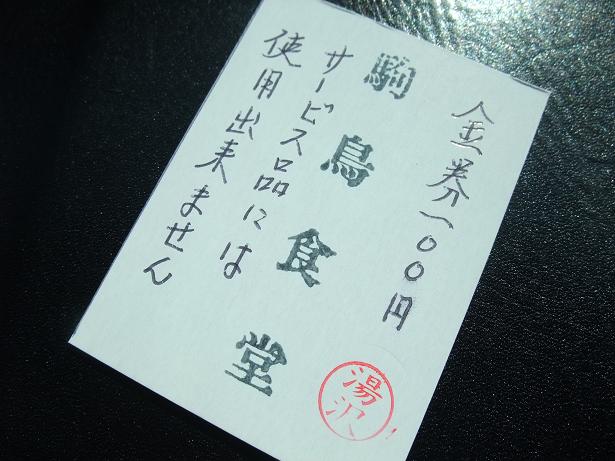 金券一〇〇円
駒鳥食堂
サービス品には
使用出来ません
湯沢